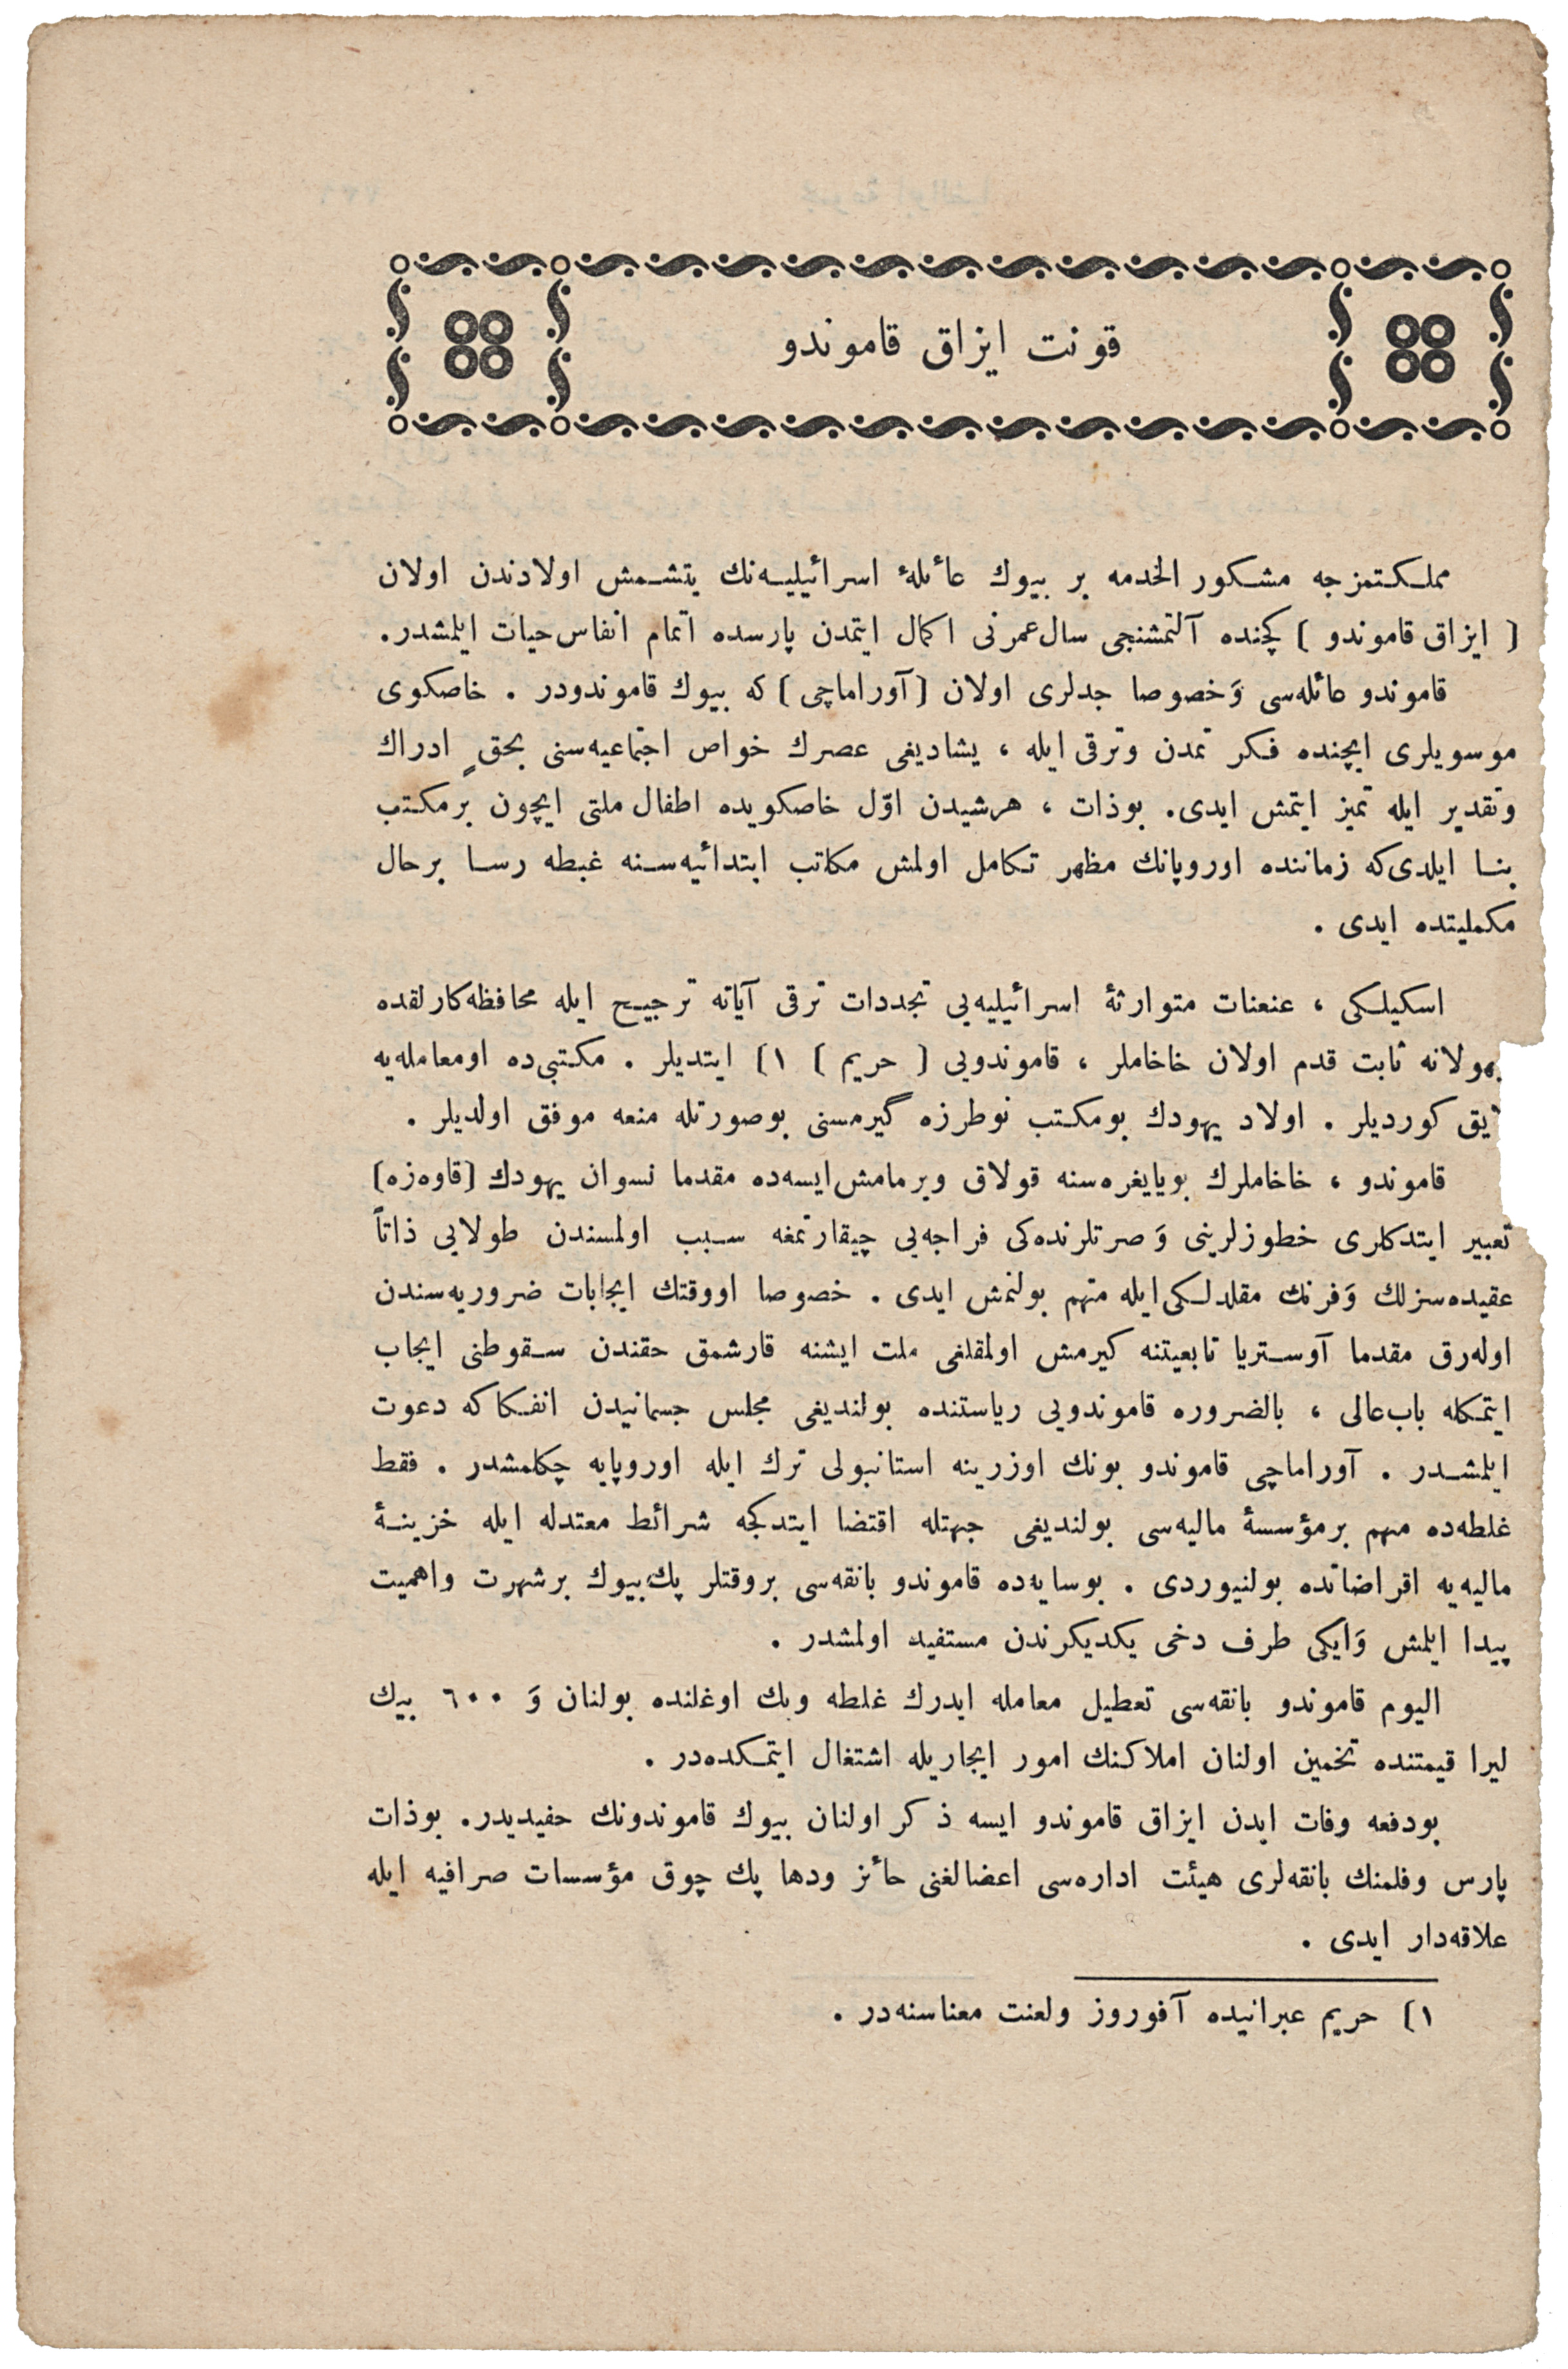 قونت ایزاق قاموندو
مملكتمزجه مشكور الخدمه بر بيوك عائلۀ اسرائيليه‌نك يتشمش اولادندن اولان
[ ايزاق قاموندو ] كچنده آلتمشنجی سال عمرنی اكمال ايتمدن پارسده اتمام انفاس حيات ايلمشدر.
قاموندو عائله‌سی وَخصوصا جدلری اولان [آوراماچی] كه بيوك قاموندودر . خاصكوی
موسويلری ايچنده فكر تمدن وترقی ايله ، يشاديغی عصرك خواص اجتماعيه‌سنی بحقٍ ادراك
وتقدير ايله تميز ايتمش ايدی. بوذات ، هرشيدن اوّل خاصكويده اطفال ملتی ايچون برمكتب
بنا ايلدی‌كه زماننده اوروپانك مظهر تكامل اولمش مكاتب ابتدائيه‌سنه غبطه رسا برحال
مكمليتده ايدی .
اسكيلكی ، عنعنات متوارثۀ اسرائيليه‌يی تجددات ترقی آياته ترجيح ايله محافظه‌كارلقده
ثابت قدم اولان خاخاملر ، قاموندويی [ حريم ] ١) ايتديلر . مكتبی‌ده اومعامله‌يه
لايق كورديلر . اولاد يهودك بومكتب نوطرزه گيرمسنی بوصورتله منعه موفق اولديلر .
قاموندو ، خاخاملرك بويايغره‌سنه قولاق ويرمامش‌ايسه‌ده مقدما نسوان يهودك [قاوه‌زه]
تعبير ايتدكلری خطوزلرينی وَصرتلرنده‌كی فراجه‌يی چيقارتمغه سبب اولمسندن طولايی ذاتاً
عقيده‌سزلك وَفرنك مقلدلكی‌ايله متهم بولنمش ايدی . خصوصا اووقتك ايجابات ضروريه‌سندن
اوله‌رق مقدما آوستريا تابعيتنه كيرمش اولمقلغی ملت ايشنه قارشمق حقندن سقوطنی ايجاب
ايتمكله باب‌عالی ، بالضروره قاموندويی رياستنده بولنديغی مجلس جسمانيدن انفكاكه دعوت
ايلمشدر . آوراماچی قاموندو بونك اوزرينه استانبولی ترك ايله اوروپايه چكلمشدر . فقط
غلطه‌ده مهم برمؤسسۀ ماليه‌سی بولنديغی جهتله اقتضا ايتدكجه شرائط معتدله ايله خزينۀ
ماليه‌يه اقراضاتده بولنيوردی . بوسايه‌ده قاموندو بانقه‌سی بروقتلر پك بيوك برشهرت واهميت
پيدا ايلمش وَايكی طرف دخی يكديكرندن مستفيد اولمشدر .
اليوم قاموندو بانقه‌سی تعطيل معامله ايدرك غلطه وبك اوغلنده بولنان وَ ٦٠٠ بيك
ليرا قيمتنده تخمين اولنان املاكنك امور ايجاريله اشتغال ايتمكده‌در .
بودفعه وفات ايدن ايزاق قاموندو ايسه ذكر اولنان بيوك قاموندونك حفيديدر. بوذات
پارس وفلمنك بانقه‌لری هيئت اداره‌سی اعضالغنی حائز ودها پك چوق مؤسسات صرافيه ايله
علاقه‌دار ايدی .
١) حريم عبرانيده آفوروز ولعنت معناسنه‌در .